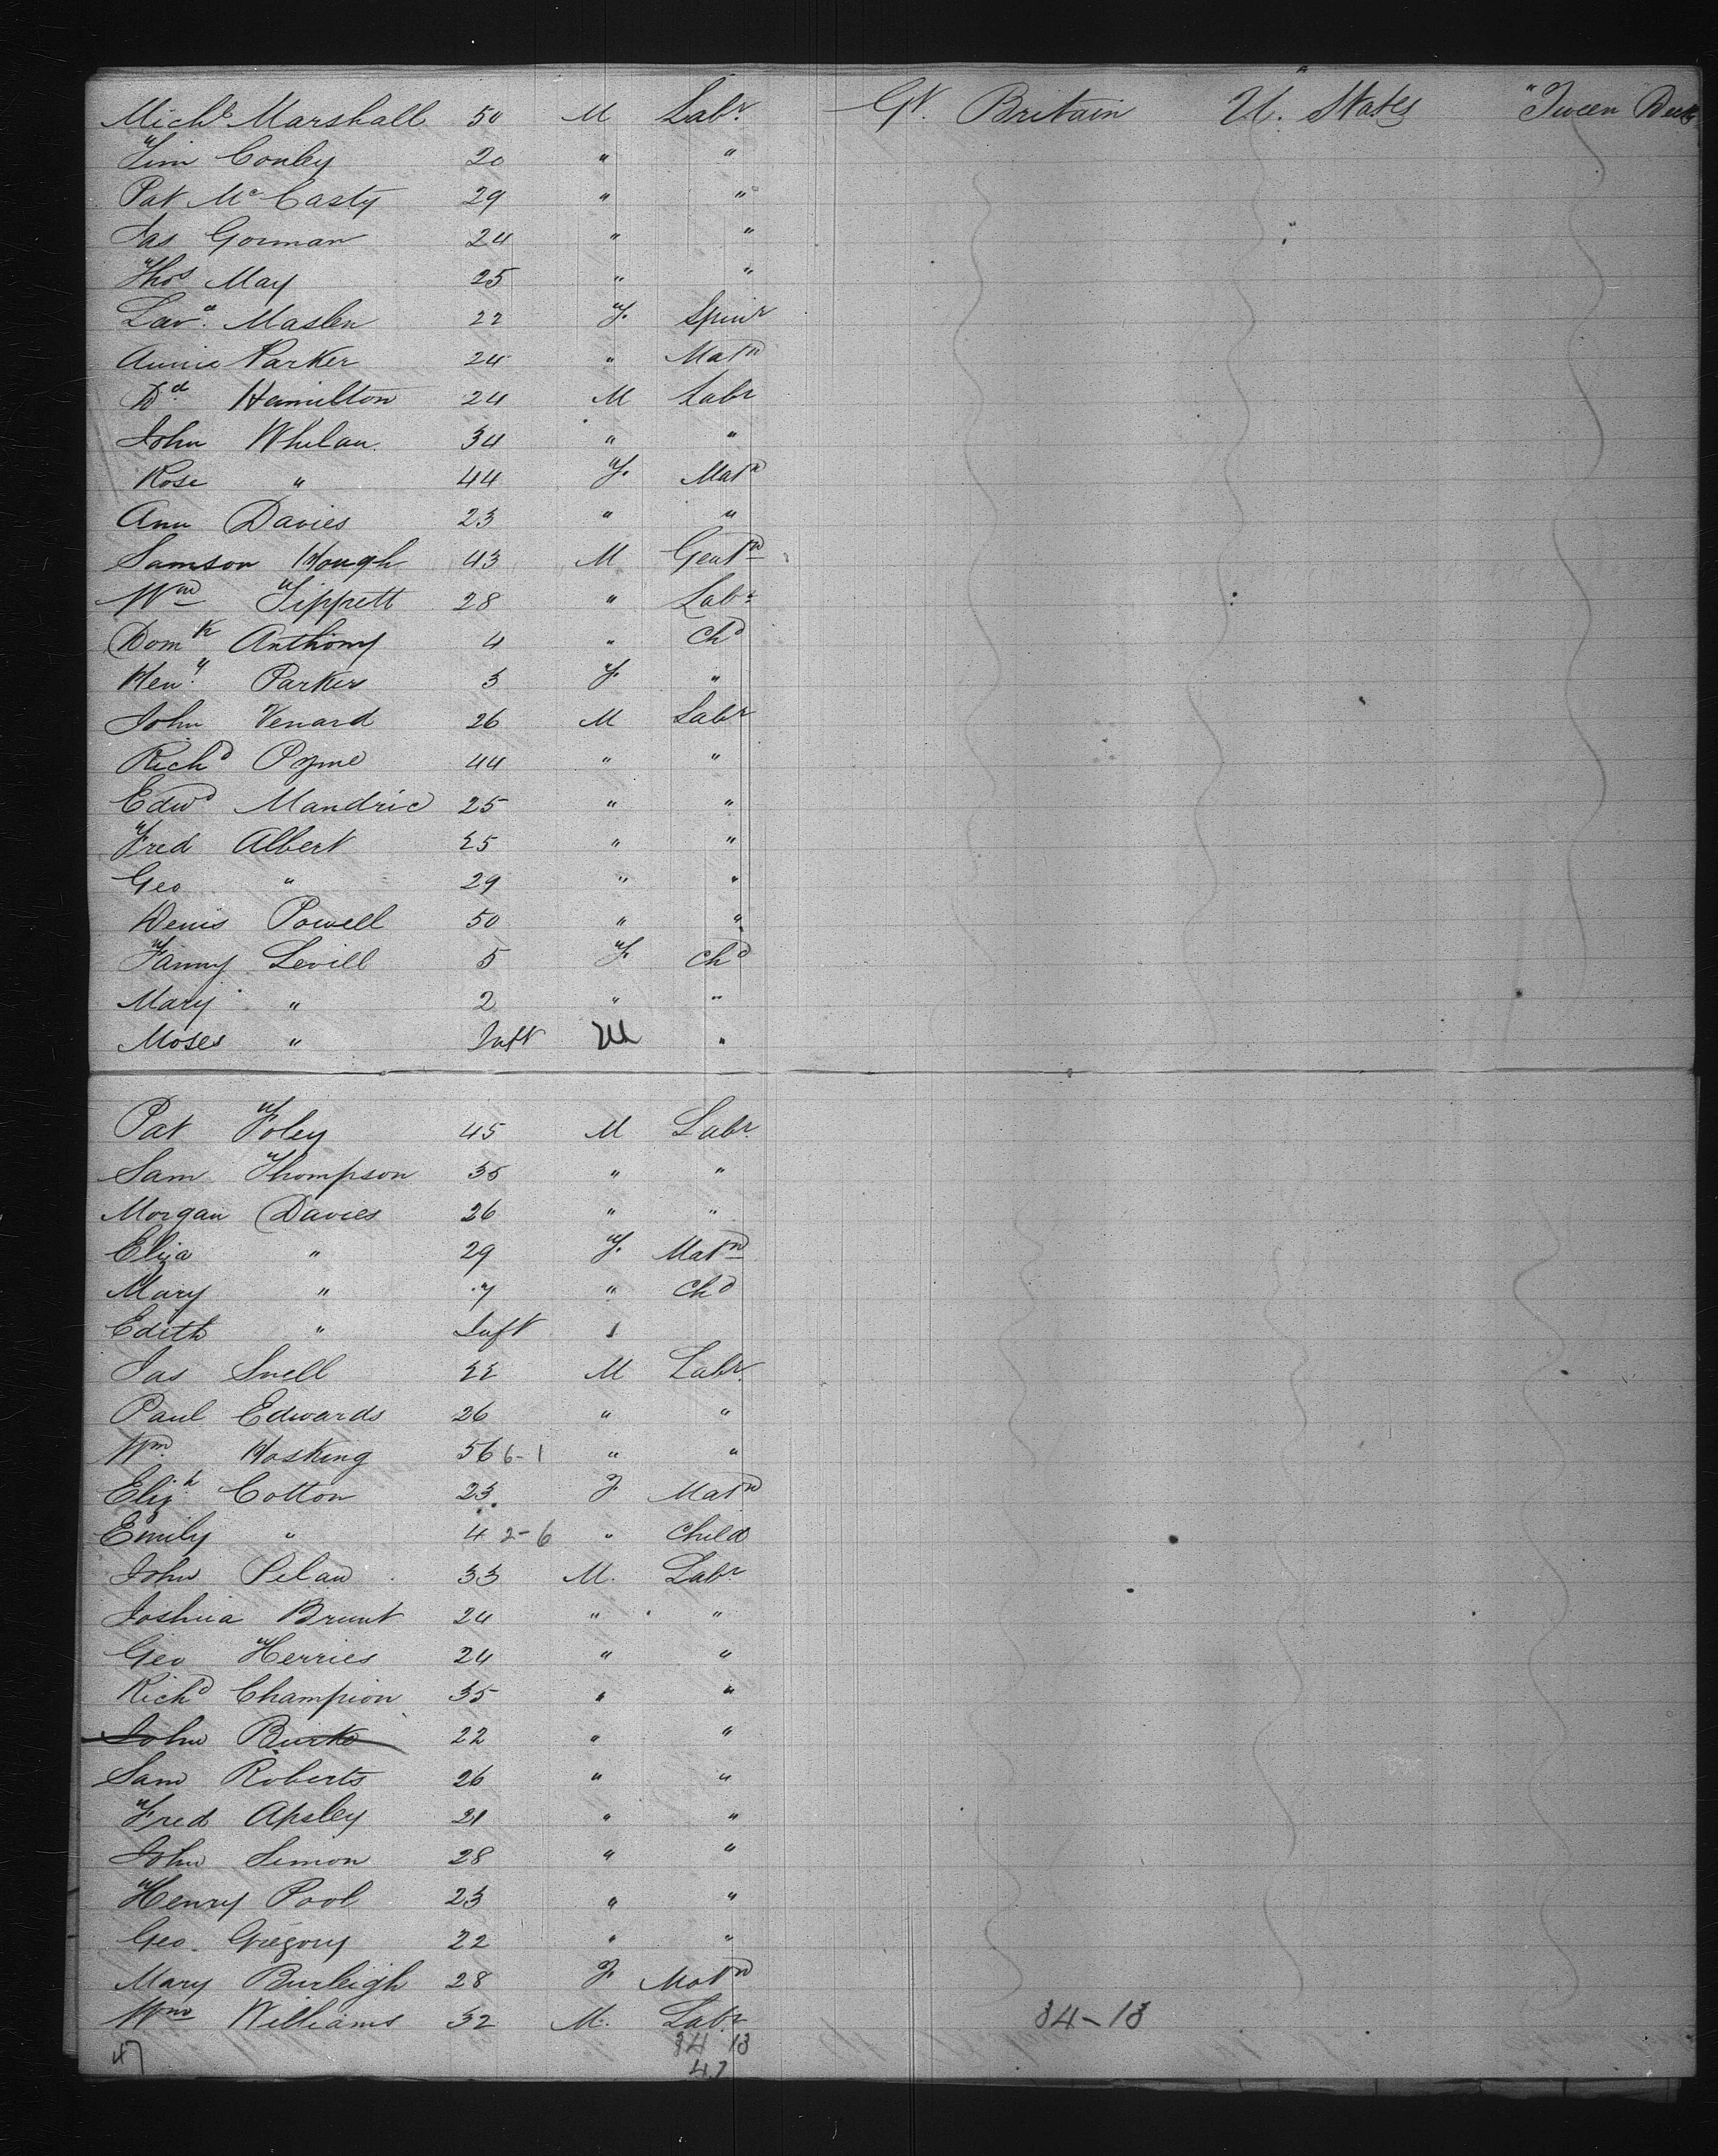 Michl Marshall 50 M Labr Gt Britain U. States "Tween Deck
Tim Conley 20 " "
Pat McCasty 29 " "
Jas Gorman 24 " "
Thos May 25 " "
Lava. Maslen 22 F. Spinr
Annie Parker 24 " Matn
Dd Hamilton 24 M Labr
John Whelan 34 " "
Rose " 44 F. Matn
Ann Davies 23 " "
Samson Hough 43 M Gentn
Wm Tippett 28 " Labr
Domk Anthony 4 " Chd
Heny. Parker 3 F. "
John Venard 26 M Labr
Richd Pyne 44 " "
Edwd Mandric 25 " "
Fred Albert 25 " "
Geo " 29 " "
Denis Powell 50 " "
Fanny Levill 5 F Chd
Mary " 2 " "
Moses " Inft M "
Pat Foley 45 M Labr
Sam Thompson 35 " "
Morgan Davies 26 " "
Eliza " 29 F. Matn
Mary " 7 " Chd
Edith " Inft
Jas Snell 22 M Labr
Paul Edwards 26 " "
Wm Hosking 56 6-1 " "
Elizh Cotton 23 F Matn
Emily " 4 2-6 " Child
John Pelaw 33 M. Labr
Joshua Brunt 24 " "
Geo Herries 24 " "
Richd Champion 35 " "
John Burke 22 " "
Sam Roberts 26 " "
Fred Apsley 21 " "
John Simon 28 " "
Henry Pool 23 " "
Geo. Gregory 22 " "
Mary Burleigh 28 F Matn
Wm Williams 32 M. Labr 34-13
34 13
47 47